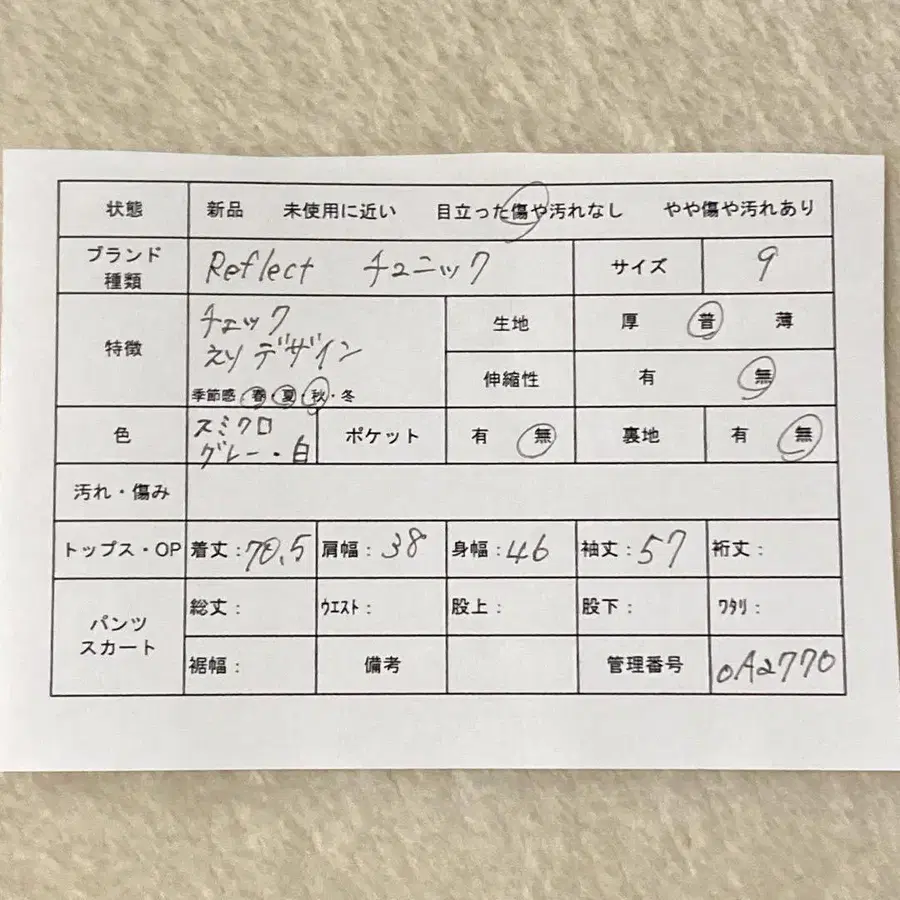 状態 新品 未使用に近い 目立った傷や汚れなし やや傷や汚れあり
ブランド 種類 Reflect チュニック サイズ 9
特徴 チェック
えりデザイン
季節感 春・夏・秋・冬
生地 厚 普 薄
伸縮性 有 無
色 スミクロ
グレー・白
ポケット 有 無 裏地 有 無
汚れ・傷み
トップス・OP 着丈:70.5 肩幅:38 身幅:46 袖丈:57 裄丈:
パンツ スカート 総丈: ウエスト: 股上: 股下: ワタリ:
裾幅: 備考 管理番号 oA2770